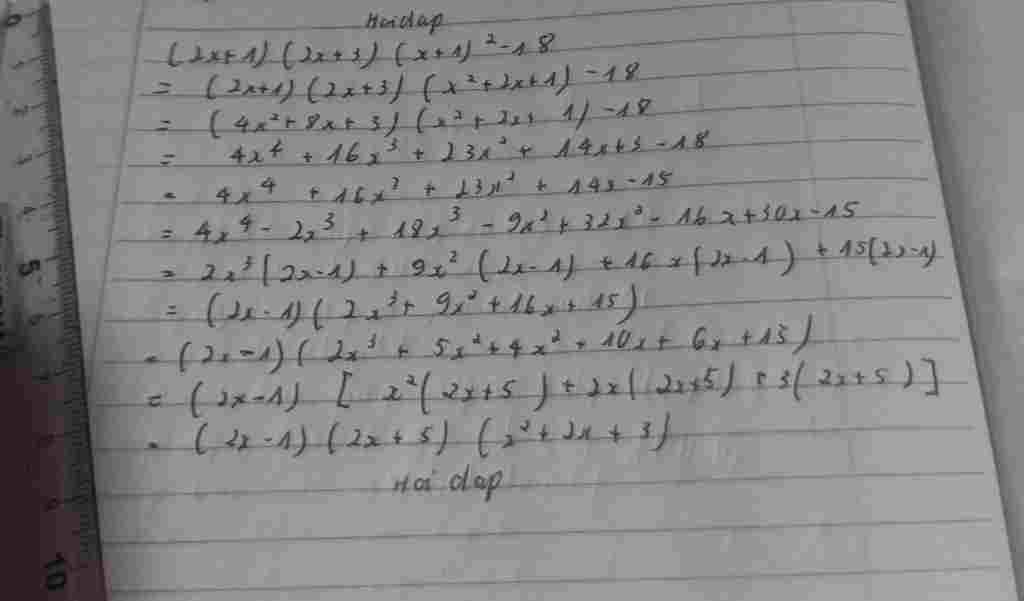 Hoidap
(2x+1) (2x+3) (x+1)² - 18
= (2x+1) (2x+3) (x²+2x+1) - 18
= (4x²+8x+3) (x²+2x+1) - 18
= 4x⁴ + 16x³ + 23x² + 14x+3 - 18
= 4x⁴ + 16x³ + 23x² + 14x - 15
= 4x⁴ - 2x³ + 18x³ - 9x² + 32x² - 16x + 30x - 15
= 2x³(2x-1) + 9x² (2x-1) + 16x(2x-1) + 15(2x-1)
= (2x-1)(2x³ + 9x² + 16x + 15)
= (2x-1)(2x³ + 5x² + 4x² + 10x + 6x + 15)
= (2x-1) [x²(2x+5) + 2x(2x+5) + 3(2x+5)]
= (2x-1)(2x+5)(x²+2x+3)
Hoi dap